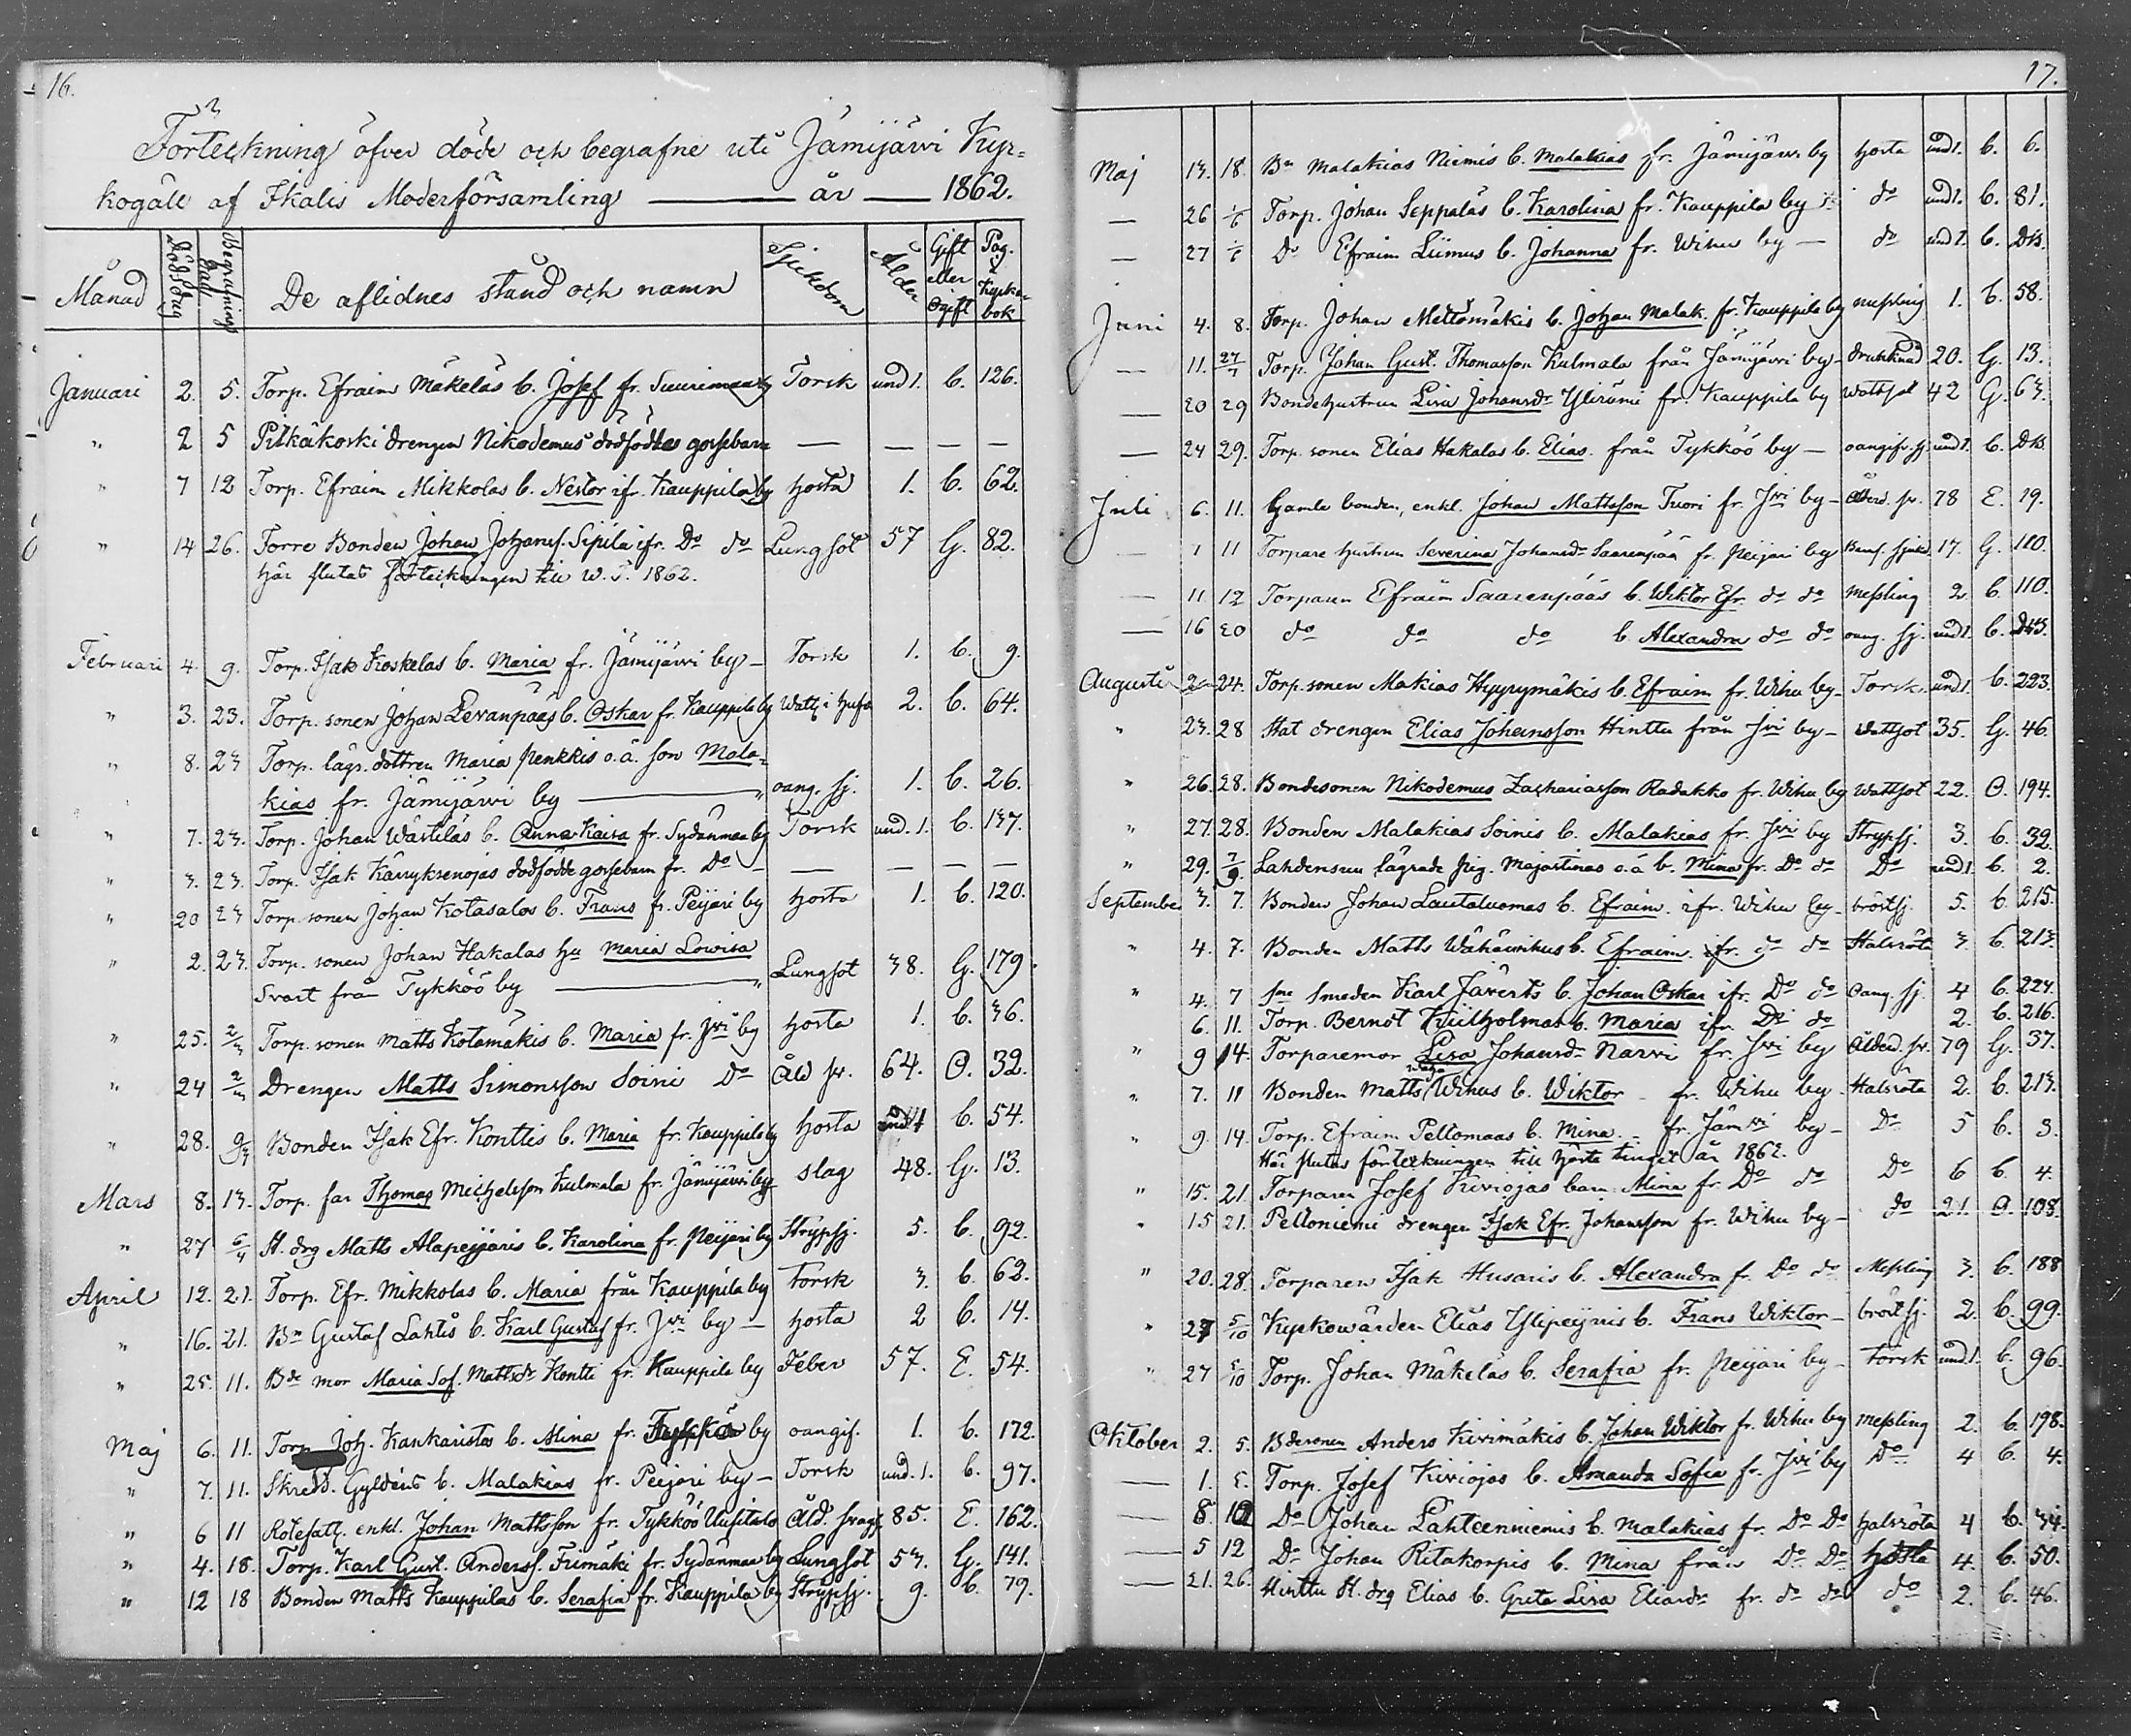 16.
Förteckning öfver döde och begrafne uti Jämijärvi Kyr-
kogäll af Ikalis Moderförsamling — år — 1862.
Månad Dödsdag Begrafnings dag De aflidnes stånd och namn Sjukdom Ålder Gift eller Ogift Pag. i Kyrko-bok
Januari 2. 5. Torp. Efraim Mäkeläs b. Josef fr. Suurimaa by Torsk und 1. b. 126.
" 2 5 Pitkäkoski drengen Nikodemus dödfödda gossebarn — — — —
" 7 12 Torp. Efraim Mikkolas b. Nestor ifr. Kauppila by Hosta 1. b. 62.
" 14 26. Förre Bonden Johan Johans. Sipilä ifr. Do do Lungsot 57 G. 82.
Här slutas förteckningen till W. T. 1862.
Februari 4. 9. Torp. Isak Koskelas b. Maria fr. Jämijärvi by — Torsk 1. b. 9.
" 3. 23. Torp. sonen Johan Levanpääs b. Oskar fr. Kauppila by Watt. i hufv. 2. b. 64.
" 8. 23 Torp. lägr. dottren Maria Penkkis o.ä. son Mala-
kias fr. Jämijärvi by — oang. sj. 1. b. 26.
" 7. 23. Torp. Johan Wästiläs b. Anna Kaisa fr. Sydänmaa by Torsk und. 1. b. 137.
" 3. 23. Torp. Isak Kärryksenojas dödfödde gossebarn fr. Do — — — — —
" 20 23 Torp. sonen Johan Kotasalos b. Frans fr. Peijari by Hosta 1. b. 120.
" 2. 23. Torp. sonen Johan Hakalas hu Maria Lowisa
Svart från Tykköö by — Lungsot 38. G. 179.
" 25. 2/3 Torp. sonen Matts Kotamäkis b. Maria fr. Jrvi by Hosta 1. b. 36.
" 24 2/3 Drengen Matts Simonsson Soini Do Åld sv. 64. O. 32.
" 28. 9/3 Bonden Isak Efr. Konttis b. Maria fr. Kauppila by Hosta und 1 b. 54.
Mars 8. 13. Torp. far Thomas Michelsson Kulmala fr. Jämijärvi by slag 48. G. 13.
" 27 6/4 St. drg Matts Alapeijaris b. Karolina fr. Peijari by Strypsj. 5. b. 92.
April 12. 21. Torp. Efr. Mikkolas b. Maria från Kauppila by Torsk 3. b. 62.
" 16. 21. Bn Gustaf Lahtis b. Karl Gustaf fr. Jrvi by — Hosta 2 b. 14.
" 25. 11. Bde mor Maria Sof. Mattsdr Kontti fr. Kauppila by Feber 57. E. 54.
Maj 6. 11. Torp. Joh. Kankaristos b. Alina fr. Tykköö by oangif. 1. b. 172.
" 7. 11. Skredd. Gyldéns b. Malakias fr. Peijari by — Torsk und. 1. b. 97.
" 6 11 Rotefatt. enkl. Johan Mattsson fr. Tykköö Uusitalo Åld. svagh 85. E. 162.
" 4. 18. Torp. Karl Gust. Anderss. Frimäki fr. Sydänmaa by Lungsot 53. G. 141.
" 12 18 Bonden Matts Kauppilas b. Serafia fr. Kauppila by Strypsj. 9. b. 79.
17.
Maj 13. 18. Bn Malakias Niemis b. Malakias fr. Jämijärvi by Hosta und 1. b. 6.
— 26 1/6 Torp. Johan Seppäläs b. Karolina fr. Kauppila by do und 1. b. 81.
— 27 1/6 Do Efraim Liimus b. Johanna fr. Wihu by — do und 1. b. Dts.
Juni 4. 8. Torp. Johan Mettomäkis b. Johan Malak. fr. Kauppila by messling 1. b. 58.
— 11. 27/7 Torp. Johan Gust. Thomasson Kulmala från Jämijärvi by — drunknad 20. G. 13.
— 20 29 Bondehustrun Lisa Johansdr Yliränni fr. Kauppila by Wattsot 42 G. 63.
— 24 29. Torp. sonen Elias Hakalas b. Elias från Tykköö by — oangifv. sj. und 1. b. Dts.
Juli 6. 11. Gamle bonden, enkl. Johan Mattsson Tuori fr. Jrvi by — Ålderd. sv. 78 E. 19.
— 7 11 Torpare hustrun Severina Johansdr Saarenpää fr. Peijari by Barns. sjukd. 17. G. 110.
— 11 12 Torparen Efraim Saarenpääs b. Wiktor Efr. do do Messling 2 b. 110.
— 16 20 do do do b Alexandra do do oang. sj. und 1. b. Dts.
Augusti 24. Torp. sonen Makias Hyyrymäkis b. Efraim fr. Wihu by — Torsk. und 1. b. 223.
" 23. 28 Stat drengen Elias Johansson Hinttu från Jrvi by — Wattsot 35. G. 46.
" 26. 28. Bondesonen Nikodemus Zachariasson Radakko fr. Wihu by Wattsot 22. O. 194.
" 27. 28. Bonden Malakias Soinis b. Malakias fr. Jrvi by Strypsj. 3. b. 32.
" 29. 7/9. Lahdensuu lägrade pig. Majastinas o.ä b. Mina fr. Do do Do und 1. b. 2.
September 3. 7. Bonden Johan Lautaluomas b. Efraim ifr. Wihu by — bröstsj. 5. b. 215.
" 4. 7. Bonden Matts Wähäwihus b. Efraim ifr. do do Halsröta 3. b. 213.
" 4. 7 Sne Smeden Karl Javerts b. Johan Oskar ifr. Do do Oang. sj. 4 b. 227.
6. 11. Torp. Bernot b. Maria ifr. Do do 2. b. 216.
" 9 14. Torparemor Lisa Johansdr Narvi fr. Jrvi by Ålderd. sv. 79 G. 37.
" 7. 11 Bonden Matts Wähä Wihus b. Wiktor — fr. Wihu by — Halsröta 2. b. 213.
" 9. 14. Torp. Efraim Peltomaas b. Mina — fr. Jämrvi by — Do 5 b. 3.
Här slutas förteckningen till höste tinget år 1862.
" 15. 21. Torparen Josef Kiviojas barn Mina fr. Do do Do 6 b 4.
" 15 21. Peltoniemi drengen Isak Efr. Johansson fr. Wihu by — do 21. O. 108.
" 20. 28. Torparen Isak Husaris b. Alexandra f. Do do Messling 3. b. 188
" 27 5/10 Kyrkowärden Elias Ylipeijaris b. Frans Wiktor — bröstsj. 2. b. 99.
" 27 5/10 Torp. Johan Mäkeläs b. Serafia fr. Peijari by — torsk und. 1. b. 96.
Oktober 2. 5. Bdesonen Anders Kivimäkis b. Johan Wiktor fr. Wihu by messling 2. b. 198.
— 1. 5. Torp. Josef Kiviojas b. Amanda Sofia fr. Jrvi by Do 4 b. 4.
— 8. 12 Do Johan Lähteenniemis b. Malakias fr. Do Do halsröta 4 b. 34.
— 5 12 Do Johan Ritakorpis b. Mina från Do Do Hosta 4. b. 50.
— 21. 26. Hinttu St. drg Elias b. Greta Lisa Eliasdr fr. do do do 2. b. 46.